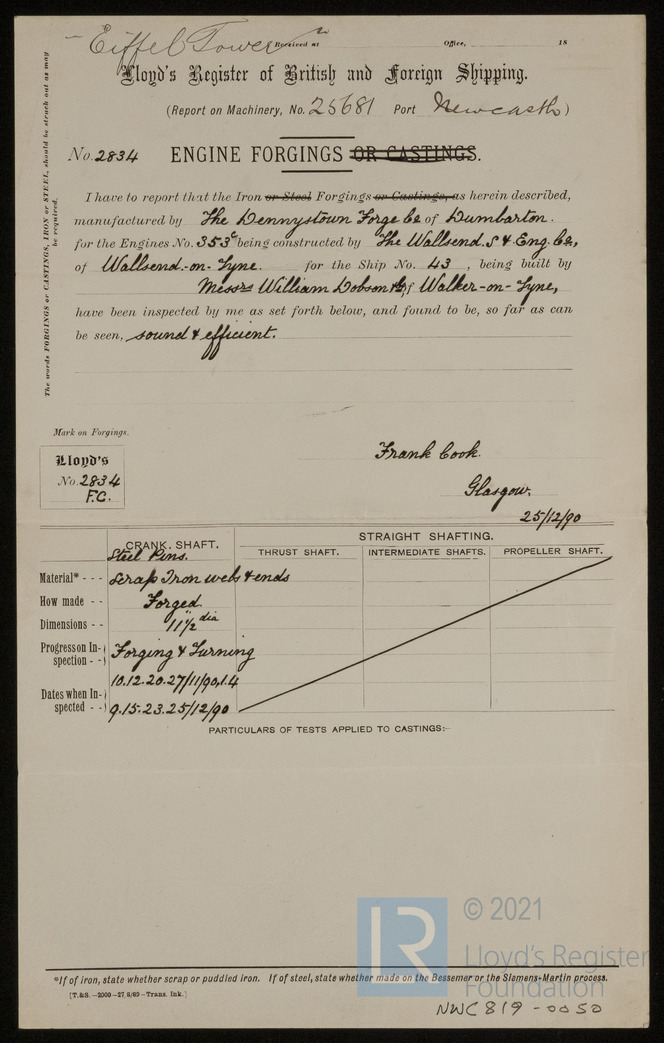 Eiffel Tower Received at Office, 18
Lloyd's Register of British and Foreign Shipping.
(Report on Machinery, No. 25681 Port Newcastle)
The words FORGINGS or CASTINGS, IRON or STEEL, should be struck out as may be required.
No. 2834 ENGINE FORGINGS OR CASTINGS.
I have to report that the Iron or Steel Forgings or Castings, as herein described,
manufactured by The Dennystown Forge Co of Dumbarton.
for the Engines No. 353c being constructed by The Wallsend. S & Eng. Co.,
of Wallsend-on-Tyne. for the Ship No. 43, being built by
Messrs William Dobson & Co of Walker-on-Tyne,
have been inspected by me as set forth below, and found to be, so far as can
be seen, sound & efficient.
Mark on Forgings.
Lloyd's
No. 2834
F.C.
Frank Cook.
Glasgow.
25/12/90
CRANK. SHAFT. STRAIGHT SHAFTING.
THRUST SHAFT. INTERMEDIATE SHAFTS. PROPELLER SHAFT.
Steel Pins.
Material* - - - Scrap Iron webs & ends
How made - - Forged.
Dimensions - - 11½" dia
Progress on In-spection - - Forging & Turning
10.12.20.27/11/90,1.4
Dates when In-spected - - 9.15.23.25/12/90
PARTICULARS OF TESTS APPLIED TO CASTINGS:–
LR © 2021
Lloyd's Register
Foundation
*If of iron, state whether scrap or puddled iron. If of steel, state whether made on the Bessemer or the Siemens-Martin process.
[T.&S.—2000—27/9/89—Trans. Ink.]
NWC819-0050